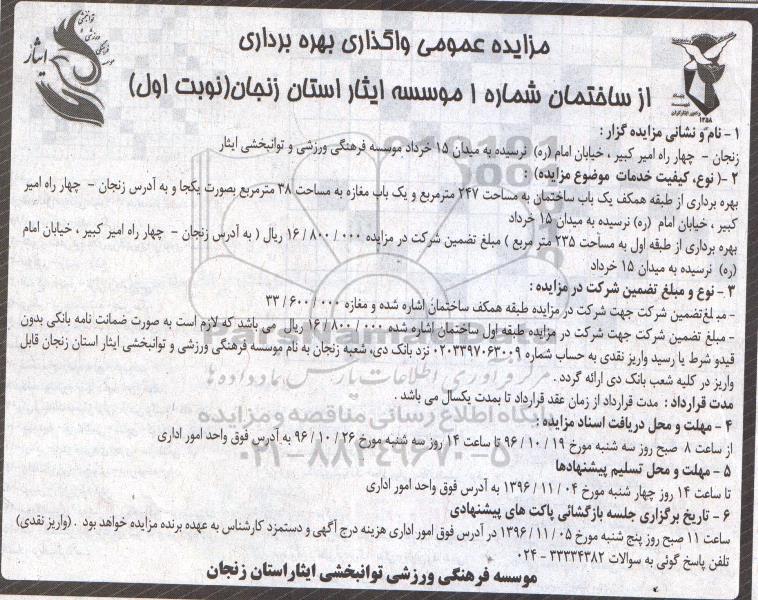 مزایده عمومی واگذاری بهره برداری
از ساختمان شماره ۱ موسسه ایثار استان زنجان(نوبت اول)
۱ - نام و نشانی مزایده گزار :
زنجان - چهار راه امیر کبیر ، خیابان امام (ره) نرسیده به میدان ۱۵ خرداد موسسه فرهنگی ورزشی و توانبخشی ایثار
۲ -( نوع، کیفیت خدمات موضوع مزایده) :
بهره برداری از طبقه همکف یک باب ساختمان به مساحت ۲۴۷ مترمربع و یک باب مغازه به مساحت ۳۸ مترمربع بصورت یکجا و به آدرس زنجان - چهار راه امیر
کبیر ، خیابان امام (ره) نرسیده به میدان ۱۵ خرداد
بهره برداری از طبقه اول به مساحت ۲۳۵ متر مربع ) مبلغ تضمین شرکت در مزایده ۱۶/۸۰۰/۰۰۰ ریال ( به آدرس زنجان - چهار راه امیر کبیر ، خیابان امام
(ره) نرسیده به میدان ۱۵ خرداد
۳ - نوع و مبلغ تضمین شرکت در مزایده :
- مبلغ تضمین شرکت جهت شرکت در مزایده طبقه همکف ساختمان اشاره شده و مغازه ۳۳/۶۰۰/۰۰۰
- مبلغ تضمین شرکت جهت شرکت در مزایده طبقه اول ساختمان اشاره شده ۱۶/۸۰۰/۰۰۰ ریال می باشد که لازم است به صورت ضمانت نامه بانکی بدون
قیدو شرط یا رسید واریز نقدی به حساب شماره ۰۲۰۳۳۹۷۰۶۳۰۰۹ نزد بانک دی، شعبه زنجان به نام موسسه فرهنگی ورزشی و توانبخشی ایثار استان زنجان قابل
واریز در کلیه شعب بانک دی ارائه گردد .
مدت قرارداد : مدت قرارداد از زمان عقد قرارداد تا بمدت یکسال می باشد .
۴ - مهلت و محل دریافت اسناد مزایده :
از ساعت ۸ صبح روز سه شنبه مورخ ۹۶/۱۰/۱۹ تا ساعت ۱۴ روز سه شنبه مورخ ۹۶/۱۰/۲۶ به آدرس فوق واحد امور اداری
۵ - مهلت و محل تسلیم پیشنهادها
تا ساعت ۱۴ روز چهار شنبه مورخ ۱۳۹۶/۱۱/۰۴ به آدرس فوق واحد امور اداری
۶ - تاریخ برگزاری جلسه بازگشائی پاکت های پیشنهادی
ساعت ۱۱ صبح روز پنج شنبه مورخ ۱۳۹۶/۱۱/۰۵ در آدرس فوق امور اداری هزینه درج آگهی و دستمزد کارشناس به عهده برنده مزایده خواهد بود . (واریز نقدی)
تلفن پاسخ گوئی به سوالات ۳۳۳۳۴۳۸۲ - ۰۲۴
موسسه فرهنگی ورزشی توانبخشی ایثاراستان زنجان
ایثار
۱۳۵۸
مرکز فرآوری اطلاعات پارس نماد داده ها
پایگاه اطلاع رسانی مناقصه و مزایده
۰۲۱-۸۸۳۴۹۶۷۰-۵